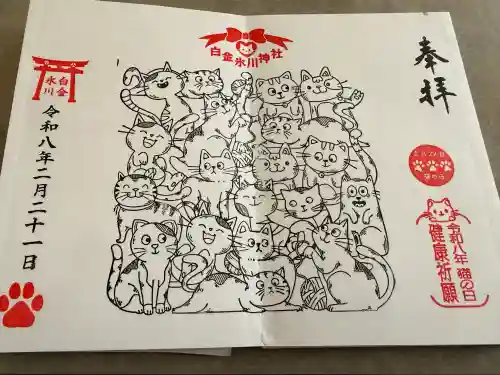 白金氷川神社
奉拝
白金
氷川
令和八年二月二十一日
令和八年 猫の日
健康祈願